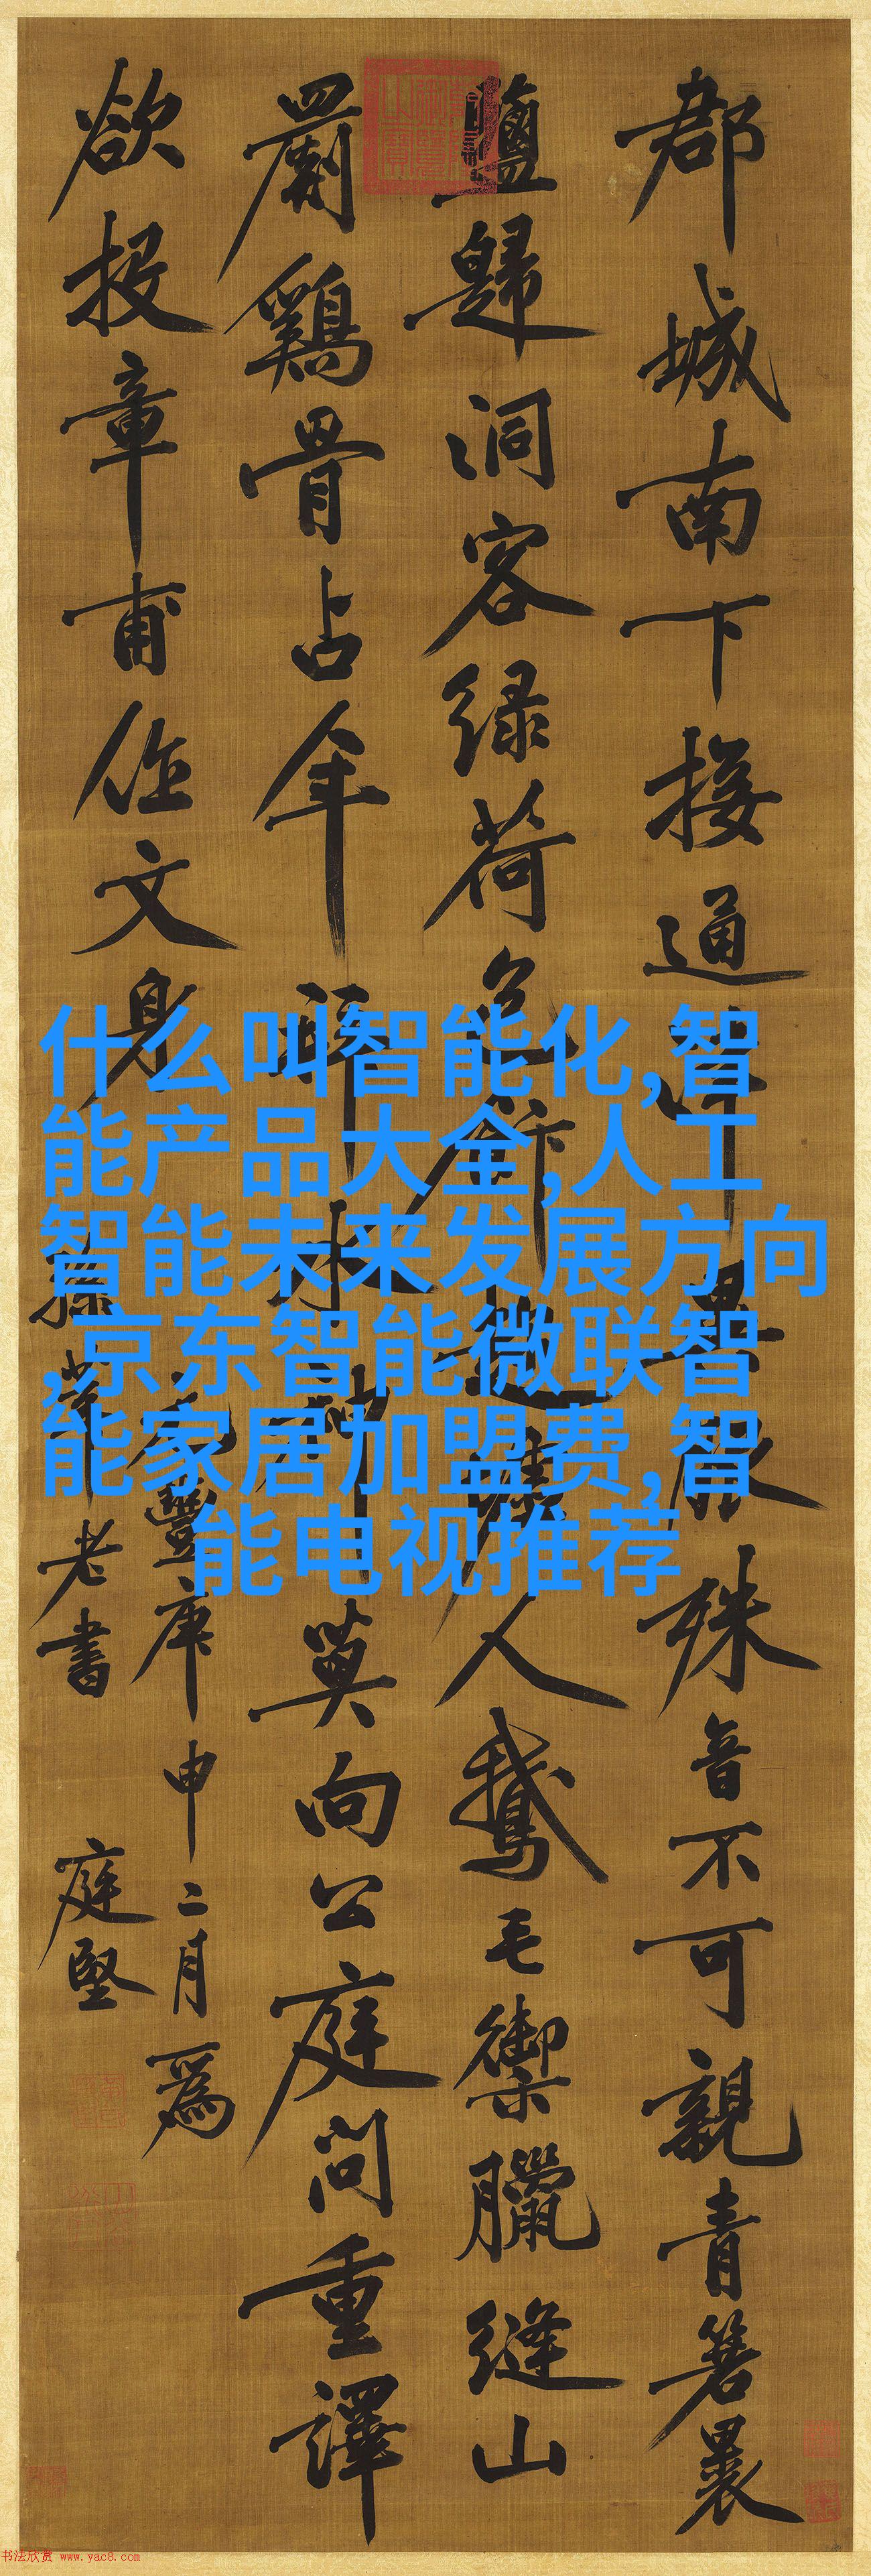 郡城南下接通津異服殊音不可親青箬裹
鹽歸洞客緑荷包飯趁墟人鵝毛禦臘縫山
罽鷄骨占年拜水神莫向公庭問重譯
欲投章甫作文身
元豐庚申二月為
孫莘老書 庭堅
什么叫智能化,智
能产品大全,人工
智能未来发展方向
,京东智能微联智
能家居加盟费,智
能电视推荐
书法欣赏 www.yac8.com